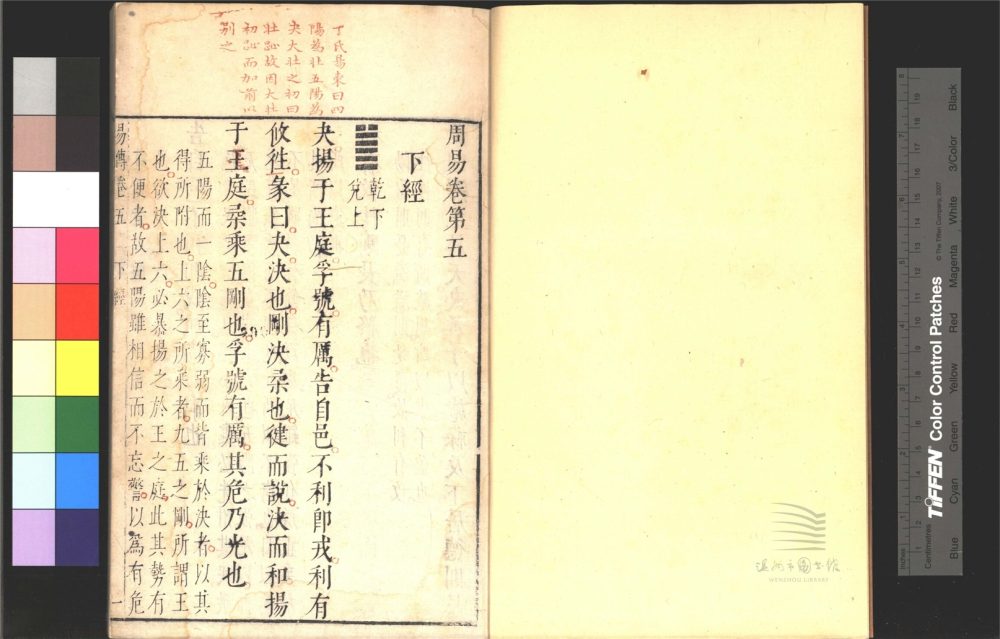 丁氏易東曰四
陽為壯五陽為
夬大壯之初曰
壯趾故因大壯
初趾而加前以
別之
周易卷第五
下經
乾下
兌上
夬揚于王庭孚號有厲告自邑不利即戎利有
攸往彖曰夬決也剛決柔也健而說決而和揚
于王庭柔乘五剛也孚號有厲其危乃光也
五陽而一陰陰至寡弱而皆乘於決者以其
得所附也上六之所乘者九五之剛所謂王
也欲決上六必暴揚之於王之庭此其勢有
不便者故五陽雖相信而不忘警以為有危
易傳卷五 下經 一
溫州市圖書館
WENZHOU LIBRARY
TIFFEN Color Control Patches
© The Tiffen Company, 2007
Blue Cyan Green Yellow Red Magenta White 3/Color Black
Inches
Centimetres